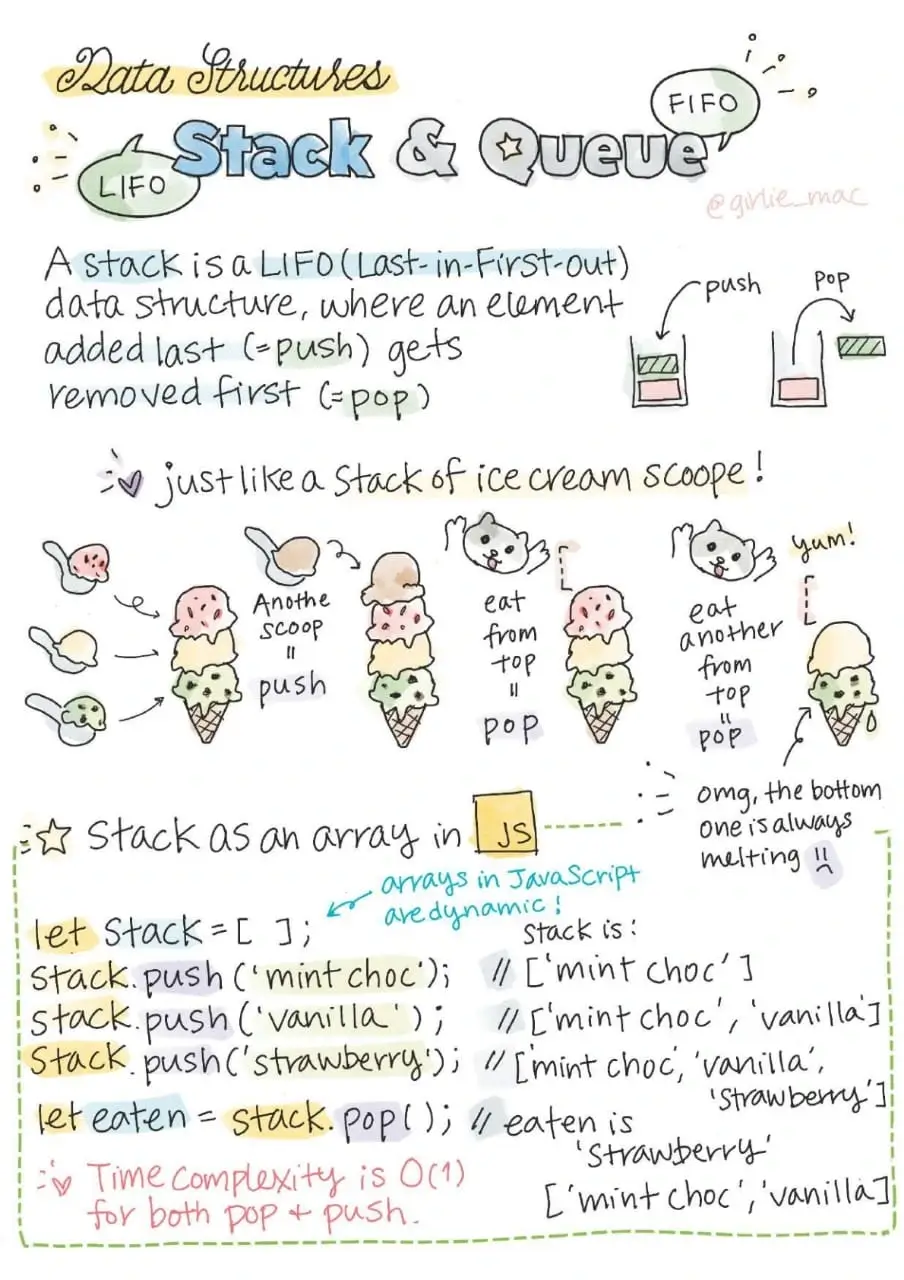 Data Structures
FIFO
Stack & Queue
LIFO
@girlie_mac
A stack is a LIFO (Last-in-First-out)
data structure, where an element
added last (=push) gets
removed first (=pop)
push
pop
just like a Stack of ice cream scoope!
Anothe
scoop
=
push
eat
from
top
=
pop
eat
another
from
top
=
pop
yum!
omg, the bottom
one is always
melting
Stack as an array in JS
arrays in JavaScript
are dynamic!
let Stack = [ ];
stack is:
stack.push('mint choc'); // ['mint choc']
stack.push('vanilla'); // ['mint choc', 'vanilla']
Stack.push('strawberry'); // ['mint choc', 'vanilla',
'Strawberry']
let eaten = stack.pop(); // eaten is
'Strawberry'
['mint choc', 'vanilla]
Time complexity is O(1)
for both pop + push.